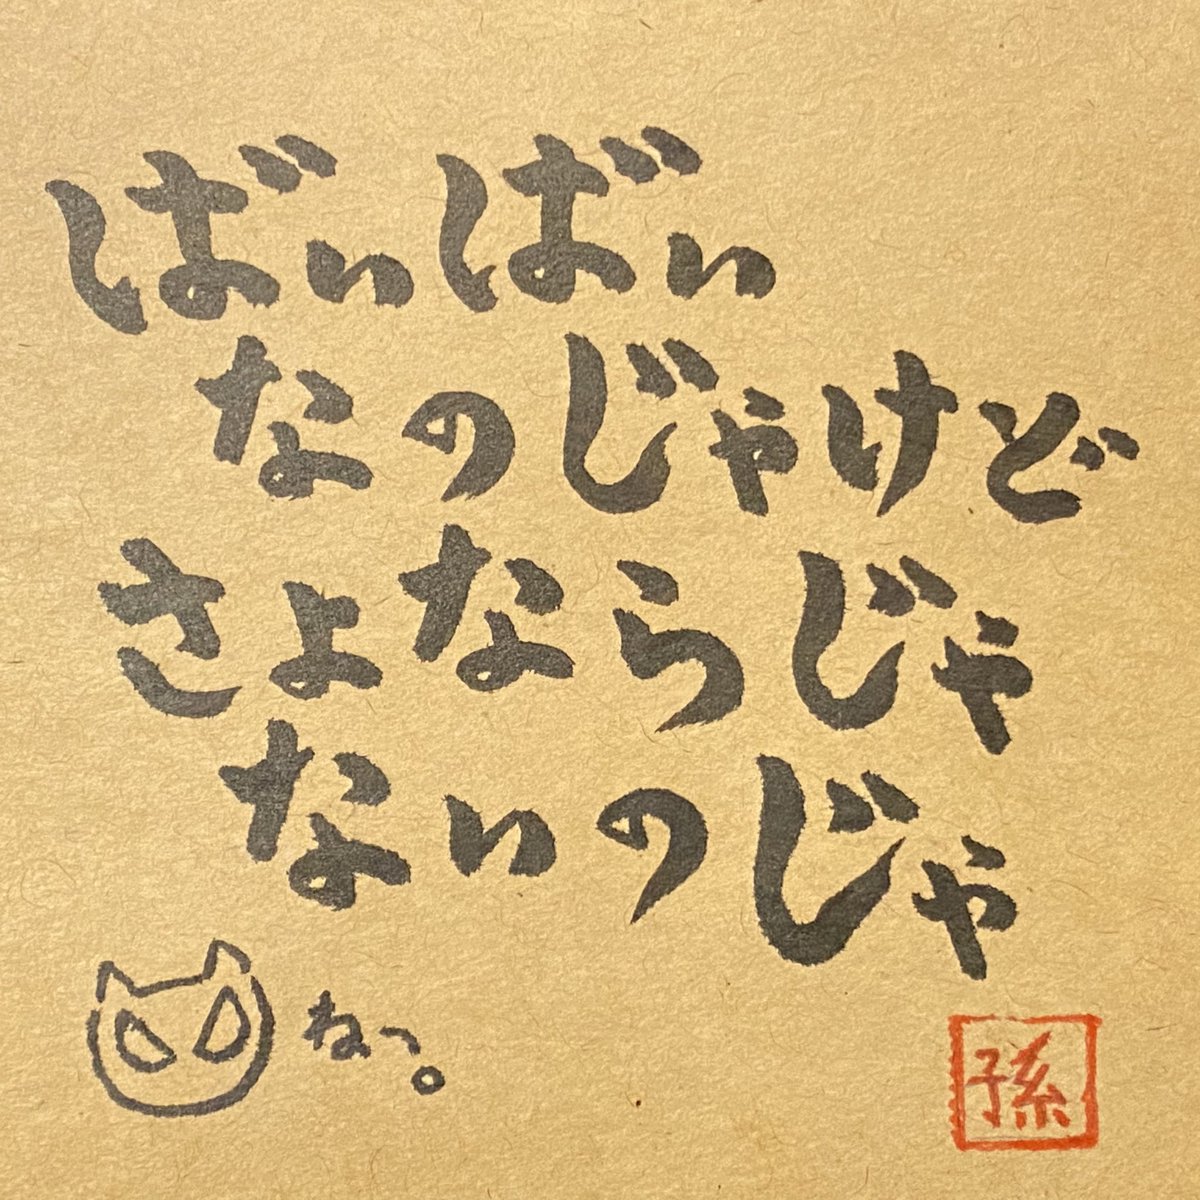 ばぃばぃ
なのじゃけど
さよならじゃ
ないのじゃ
ねっ。
孫